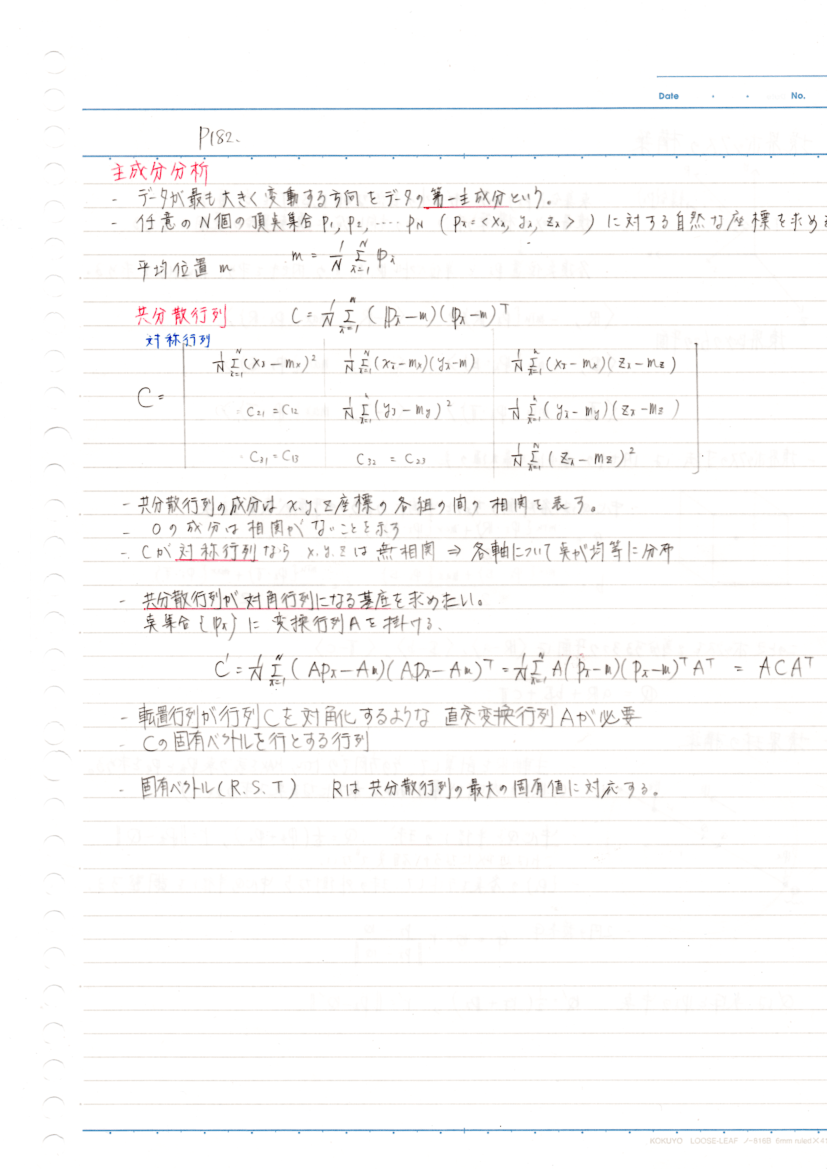 Date ・ ・ No.
P182.
主成分分析
- データが最も大きく変動する方向をデータの第一主成分という。
- 任意のN個の頂点集合 P₁, P₂, ‥‥ P_N ( Pᵢ = <xᵢ, yᵢ, zᵢ> ) に対する自然な座標を求め
平均位置 m m = 1/N Σ_{i=1}^{N} Pᵢ
共分散行列 C = 1/N Σ_{i=1}^{N} (Pᵢ - m)(Pᵢ - m)^T
対称行列
1/N Σ_{i=1}^{N} (xᵢ - mₓ)² 1/N Σ_{i=1}^{N} (xᵢ - mₓ)(yᵢ - m) 1/N Σ_{i=1}^{N} (xᵢ - mₓ)(zᵢ - m_z)
C = C₂₁ = C₁₂ 1/N Σ_{i=1}^{N} (yᵢ - m_y)² 1/N Σ_{i=1}^{N} (yᵢ - m_y)(zᵢ - m_z)
C₃₁ = C₁₃ C₃₂ = C₂₃ 1/N Σ_{i=1}^{N} (zᵢ - m_z)²
- 共分散行列の成分は x.y.z座標の各組の間の相関を表す。
- 0の成分は相関がないことを示す
- Cが対称行列なら x.y.zは無相関 ⇒ 各軸について点が均等に分布
- 共分散行列が対角行列になる基底を求めたい。
点集合{Pᵢ}に変換行列Aを掛ける.
C' = 1/N Σ_{i=1}^{N} (APᵢ - Am)(APᵢ - Am)^T = 1/N Σ_{i=1}^{N} A(Pᵢ - m)(Pᵢ - m)^T A^T = ACA^T
- 転置行列が行列Cを対角化するような 直交変換行列Aが必要
- Cの固有ベクトルを行とする行列
- 固有ベクトル(R.S.T) Rは共分散行列の最大の固有値に対応する。
KOKUYO LOOSE-LEAF ノ-816B 6mm ruled×41